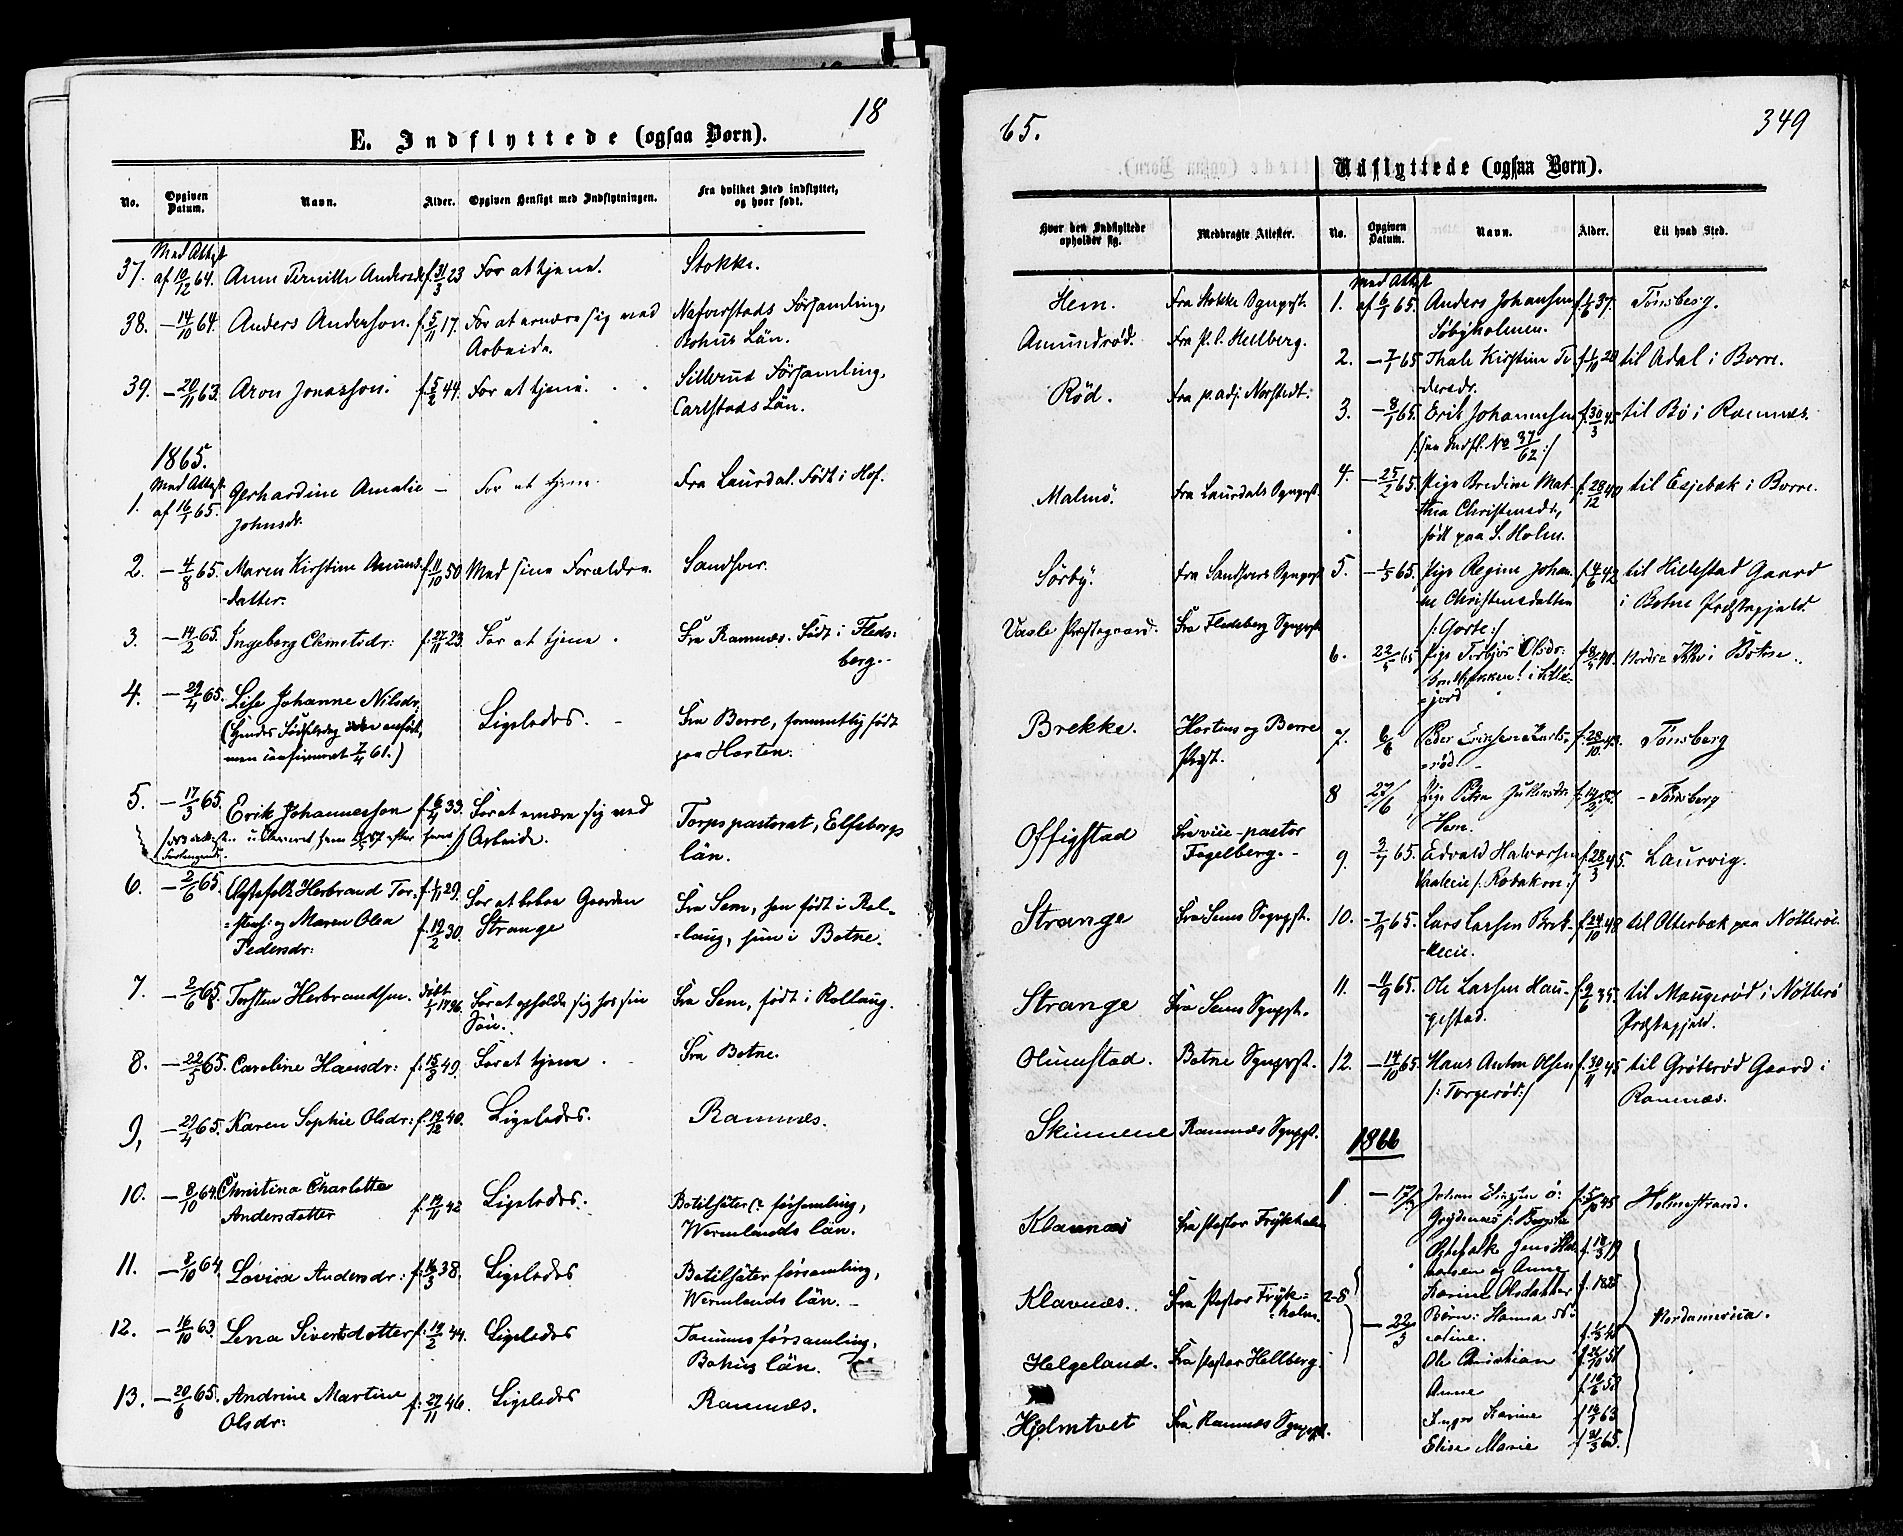 18
E. Indflyttede (ogsaa Børn).
No.
Opgiven Datum.
Navn.
Alder.
Opgiven Hensigt med Indflytningen.
Fra hvilket Sted indflyttet, og hvor født.
Med Attest
37. af 10/12 64. Anne Pernille Andersdr f. 31/3 23 For at tjene. Stokke.
38. — 14/10 64. Anders Anderson. f. 5/11 17. For at ernære sig ved Naverstads Församling,
Arbeide. Bohus Län.
39. — 20/11 63. Aron Jonasson f. 5/2 44. For at tjene. Sillerud Församling,
Carlstads Län.
1865.
Med Attest
1. af 16/1 65. Gerhardine Amalie — For at tjene. Fra Laurdal. Født i Hof.
Johnsdr.
2. — 4/8 65. Maren Kirstine Amunds- f. 11/10 50 Med sine Forældre. Sandsver.
datter.
3. — 14/2 65. Ingeborg Clemetsdr: f. 27/11 23. For at tjene. Fra Ramnæs. Født i Fleds:
berg.
4. — 29/4 65. Lise Johanne Nilsdr. Ligeledes. Fra Borre, formentlig født
paa Horten.
men confirmeret 7/4 61.)
5. — 17/3 65. Erik Johannesson f. 6/4 33. For at ernære sig ved Torps pastorat, Elfsborgs
Arbeide. län.
6. — 2/6 65. Ægtefolk Herbrand Tor- f. 1/11 29. For at beboe Gaarden Fra Sem, han født i Rol-
stens: og Maren Olea f. 19/2 30. Strange laug, hun i Botne.
Pedersdr:
7. — 2/6 65. Torsten Herbrandsen. døbt 1/1 1796. For at opholde sig hos sin Fra Sem, født i Rollaug.
Søn.
8. — 22/5 65. Caroline Hansdr: f. 15/8 49. For at tjene. Fra Botne.
9, — 29/4 65. Karen Sophie Olsdr: f. 19/12 40. Ligeledes. Ramnæs.
10. — 8/10 64. Christina Charlotta f. 19/11 42 Ligeledes. Botilsäter församling,
Andersdotter Wermlands län.
11. — 8/10 64 Lovisa Andersdr: f. 16/3 38. Ligeledes Botilsäter församling,
Wermlands län.
12. — 16/10 63. Lena Sivertsdotter f. 19/2 44. Ligeledes Tanums församling,
Bohus län.
13. — 20/6 65. Andrine Martine f. 27/11 46. Ligeledes Ramnæs.
Olsdr:
65.
349
Udflyttede (ogsaa Børn).
Hvor den Indflyttede opholder sig.
Medbragte Attester.
No.
Opgiven Datum.
Navn.
Alder.
Til hvad Sted.
Hem. Fra Stokke Sgnpst.
Amundrød. Fra Hellberg.
Rød. Fra p. adj. Norstedt.
Malmø. Fra Laurdals Sgnpst.
Sørby. Fra Sandsvers Sgnpst
Vaale Præstegaard. Fra Flesberg Sgnpst
Brekke. Hortens og Borre
Præst.
Offigstad Fra vice-pastor
Fogelberg.
Strange Fra Sems Sognpst.
Strange Fra Sems Sgnpst.
Olumstad. Botne Sgnpst.
Skinnene Ramnæs Sgnpst.
Klavnæs Fra Pastor Frykholm
Klavnæs. Fra Pastor Fryk-
holm.
Helgeland. Fra Pastor Hellberg.
Hjelmtvet Fra Ramnæs Sgnpst.
Med Attest
1. af 6/1 65. Anders Johansen 37. Tønsberg.
Søbyholmen.
2. — 7/1 65 Thale Kirstine Pe- til Adal i Borre.
dersdr.
3. — 8/1 65. Erik Johannesen f. 30/3 45 til Bø i Ramnæs.
/: see Indfl. No 37/62 :/
4. — 25/2 65. Pige Bredine Mat- f. 28/12 40 til Esjebæk i Borre.
thea Christensdr,
født paa S. Holm.
5. — 1/5 65. Pige Regine Johan- f. 4/6 42 til Hillestad Gaard
ne Christensdatter i Botne Præstegjeld.
6. 22/5 65 Pige Torbjør Olsdr: 40. Nordre i Botne.
7. 6/6 Peder f. 28/10 43. Tønsberg
8 27/6 Tønsberg
Hem.
9. 3/7 65. Edvald Halvorsen f. 28/3 45. Laurvig.
10. — 7/9 65. Lars Larsen Brek- f. 24/10 48 til Otterbæk paa Nøtterøe.
11. — 11/9 65. Ole Larsen Hau- f. 9/6 35. til Maugerød i Nøtterø
gestad. Præstegjeld.
12. — 14/10 65. Hans Anton Olsen f. 30/11 45 til Grøterød Gaard i
/: Torgerød :/ Ramnæs.
1866
1 — 17/3 Johan 45 Holmestrand.
2-8 — 22/3 Ægtefolk Jens Nordamerica.
og Anne
Karine Olsdatter f. 1825
Børn: Hanna
Ole Christian
Anne
Inger Karine 63
Elise Marie 65.